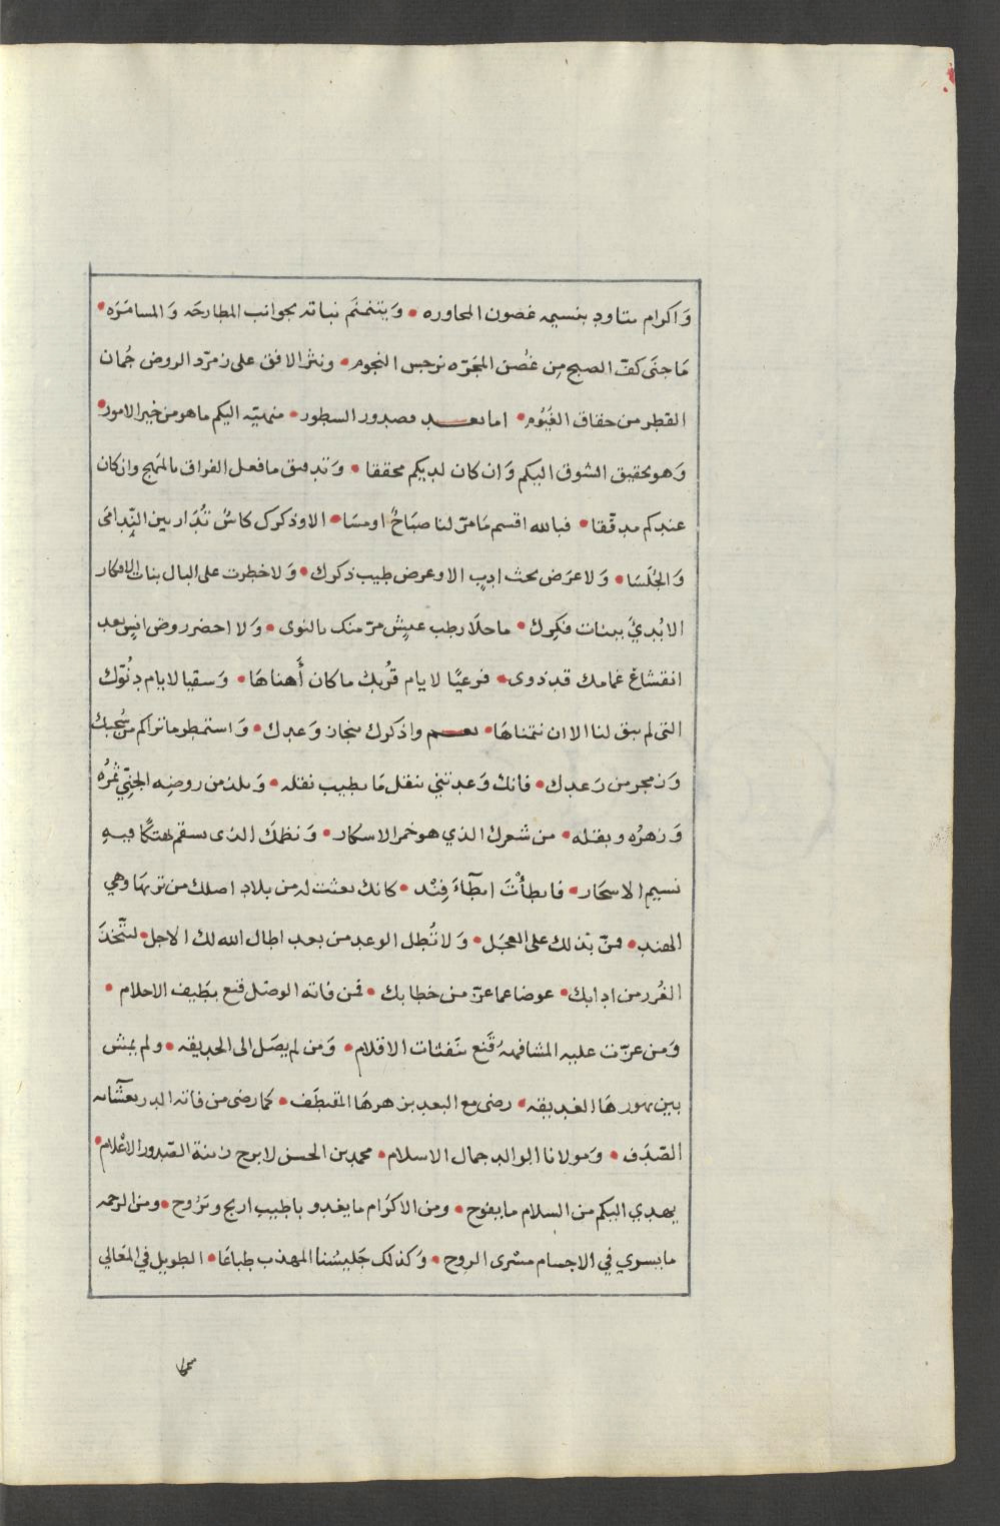 وَاكرام يتاود بنسيمه غصون المحاوره • وَيتنمنَم نباته بجوانب المطارحَه وَالمسامَرَه •
مَا جنَى كفّ الصبح مِن غُصن المجَرّه نرجس النجوم • ونثر الافق على زمرّد الروض جُمان
القطر من حقاق الغَيُوم • اما بعد فصدور السطور • منهيّه اليكم ما هو من خير الامور •
وَهو تحقيق الشوق اليكم وَان كان لديكم محققا • وَتدقيق ما فعل الفراق بالمهج وان كان
عندكم مدقّقا • فبالله اقسم مَا مرّ لنا صبَاحُ اومسَا • الا وذكرك كاسُ تُدَار بين النِّدامَى
وَالجُلَسَا • وَلا عرَض بحث ادبٍ الا وعرض طيب ذكرك • وَلا خطرت على البال بنات الافكار
الا بُديُ ببنات فكِرك • ما حلَا رطب عيش مرّ منك بالنوى • وَلا اخضر روض انسٍ بعد
انقشاعْ غمامك قد ذوى • فرعيًا لايام قُربك ما كان أَهناهَا • وَسقيا لايام دنُوّك
التى لم يبق لنا الا ان نتمناهَا • نعم واذكرك نجاز وَعدك • وَاستمطر ما تراكم من سُحبك
وَزمجر من رَعدك • فانك وَعدتني بنقل مَا يطيب نقله • من روضِه الجنِيّ ثمرُه
وَزهرُه وبقله • من شعرك الذي هو خمر الاسكار • وَنظمك الذى فيهِ
نسيم الاسحَار • فابطأْتَ ابطَآءَ فِنْد • كانك بعثت له من بلاد اصلك من تربهَا وهي
الهند • فمنّ بذلك على العجَل • وَلا تُطل الوعد من بعد اطال الله لك الاجل • لنتّخذَ
الغُرر من ادابك • عوضا عما عزّ من خطابك • فمن فاته الوصل قنع بطيف الاحلام •
وَمن عزّت عليه المشافهه قَنع بنفثات الاقلام • وَمن لم يصَل الى الحديقه • ولم يمش
بين نهورهَا الغديقه • رضى مع البعد بزهرهَا المقتطَف • كما رضى من فاته البدر
الصّدَف • وَمولانا الوالد جمال الاسلام • محمد بن الحسن لا برح زينة الصّدور الاعْلام •
يهدي اليكم من السلام ما يفوح • ومن الاكرَام ما يغدو باطيب اريج وترُوح • ومن الرحمه
ما يسري في الاجسام مسْرى الروح • وَكذلك جَليسُنا المهذب طباعَا • الطويل في المعَالي